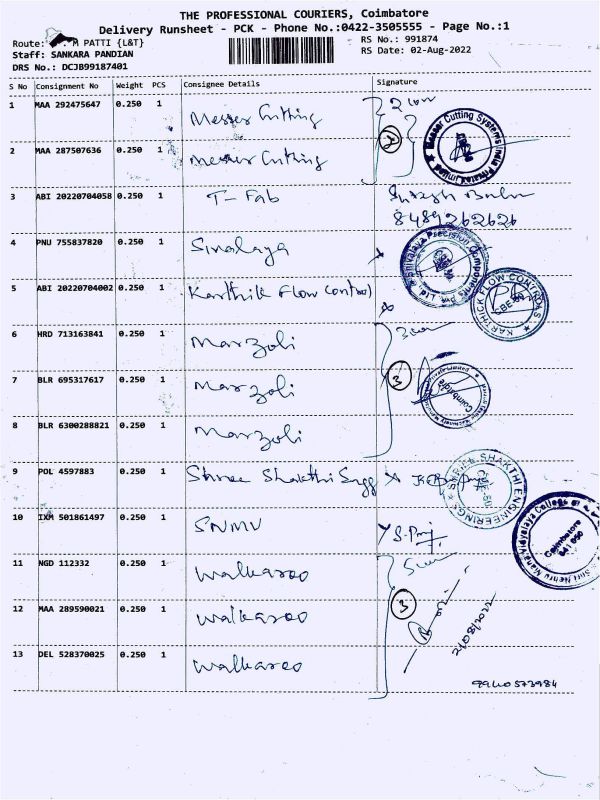 THE PROFESSIONAL COURIERS, Coimbatore
Delivery Runsheet - PCK - Phone No.:0422-3505555 - Page No.:1
Route: M PATTI {L&T} RS No.: 991874
Staff: SANKARA PANDIAN RS Date: 02-Aug-2022
DRS No.: DCJB99187401
S No Consignment No Weight PCS Consignee Details Signature
1 MAA 292475647 0.250 1 Messer Cutting
2 MAA 287507636 0.250 1 Messer Cutting
2
Messer Cutting Systems India Private Limited
3 ABI 20220704058 0.250 1 T-Fab
8489262626
4 PNU 755837820 0.250 1 Sivalaya
Shivalaya Precision Components Pvt. Ltd
5 ABI 20220704002 0.250 1 Karthik Flow Control
KARTHICK FLOW CONTROLS
CBE-50
6 HRD 713163841 0.250 1 Marzoli
7 BLR 695317617 0.250 1 Marzoli
3
Coimbatore
8 BLR 6300288821 0.250 1 Marzoli
9 POL 4597883 0.250 1 Shree Shakthi Engg
SHREE SHAKTHI ENGINEERINGS
10 IXM 501861497 0.250 1 SNMV
Shri Nehru Maha Vidyalaya College of
Coimbatore
641 050
11 NGD 112332 0.250 1 Walkaroo
12 MAA 289590021 0.250 1 Walkaroo
3
2/08/2022
13 DEL 528370025 0.250 1 Walkaroo